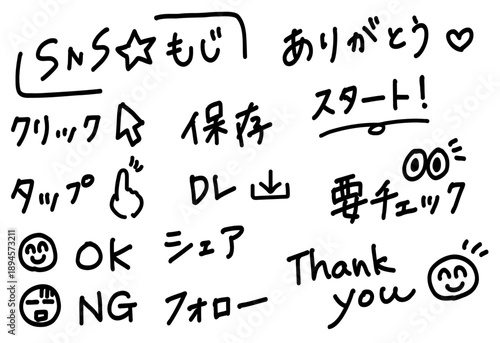 SNS☆もじ
ありがとう♡
クリック
保存
スタート!
タップ
DL
要チェック
OK
シェア
NG
フォロー
Thank
you
Adobe Stock | #1894573211